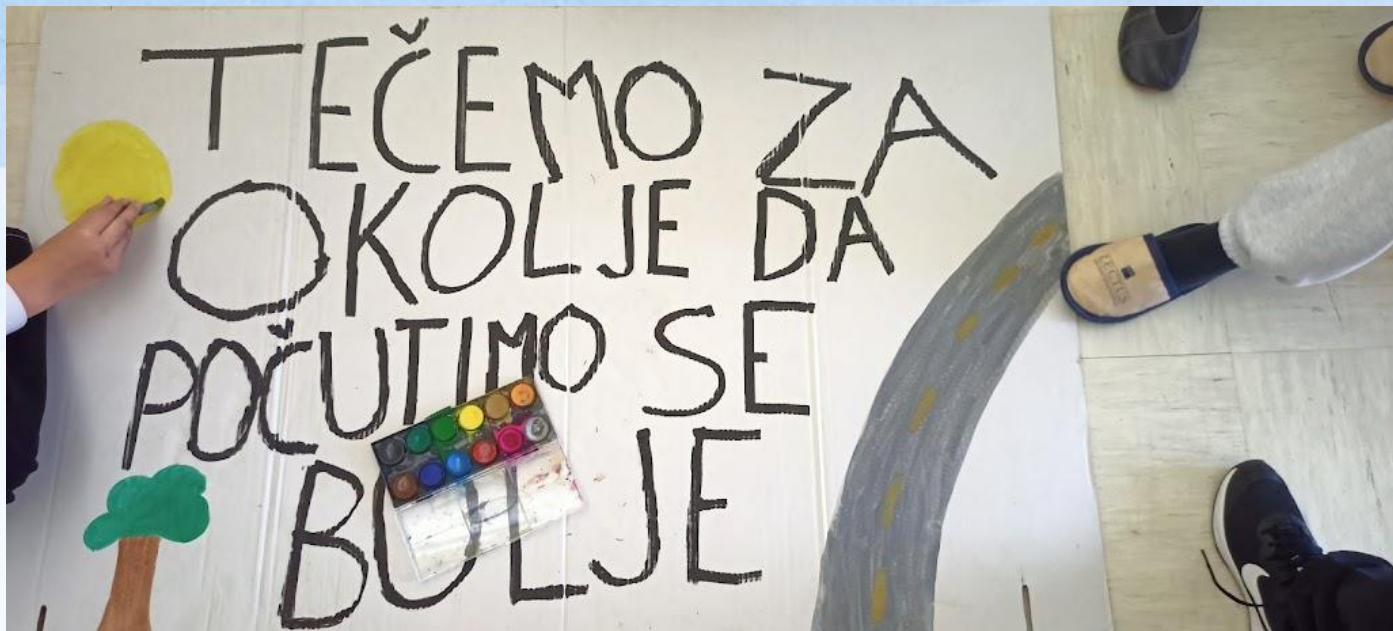 TEČEMO ZA
OKOLJE DA
POČUTIMO SE
BOLJE